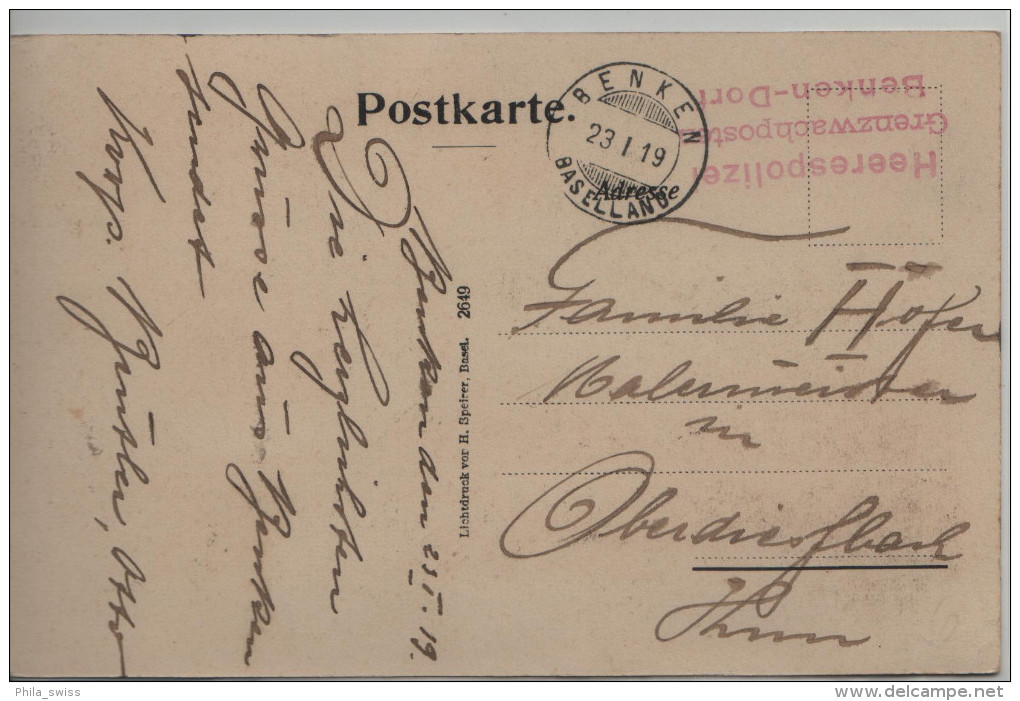 Postkarte.
BENKEN
23 I 19
BASELLAND
Heerespolizei
Grenzwachposten
Benken-Dorf
Adresse
Familie Hofer
Malermeister
in
Oberdiessbach
Thun
Benken den 23 I. 19.
Die herzlichsten
Grüsse aus Benken
sendet
Korp. Otto
Lichtdruck von H. Speiser, Basel. 2649
Phila_swiss
www.delcampe.net